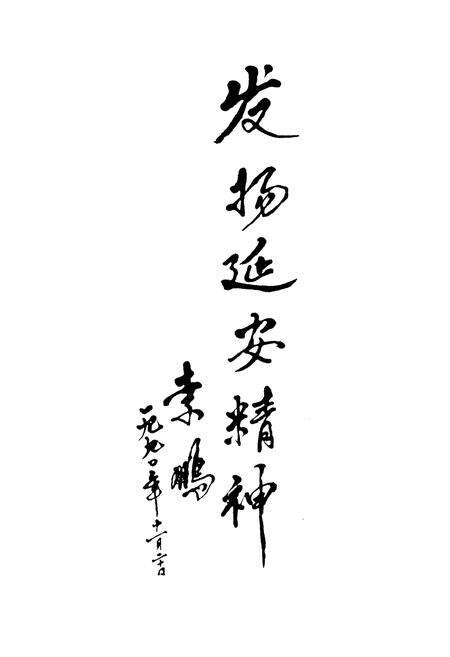 发扬延安精神
李鹏
一九九〇年十一月二十日